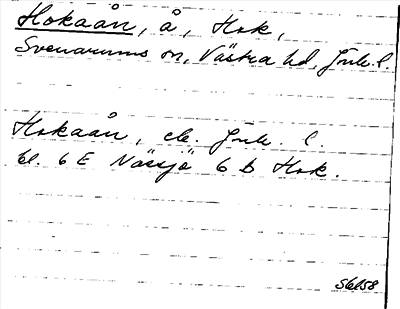 Hokaån, å, Hok,
Svenarums sn, Västra hd, Jönk. l.
Hokaån, ek. Jönk. l.
bl. 6 E Nässjö 6 b Hok.